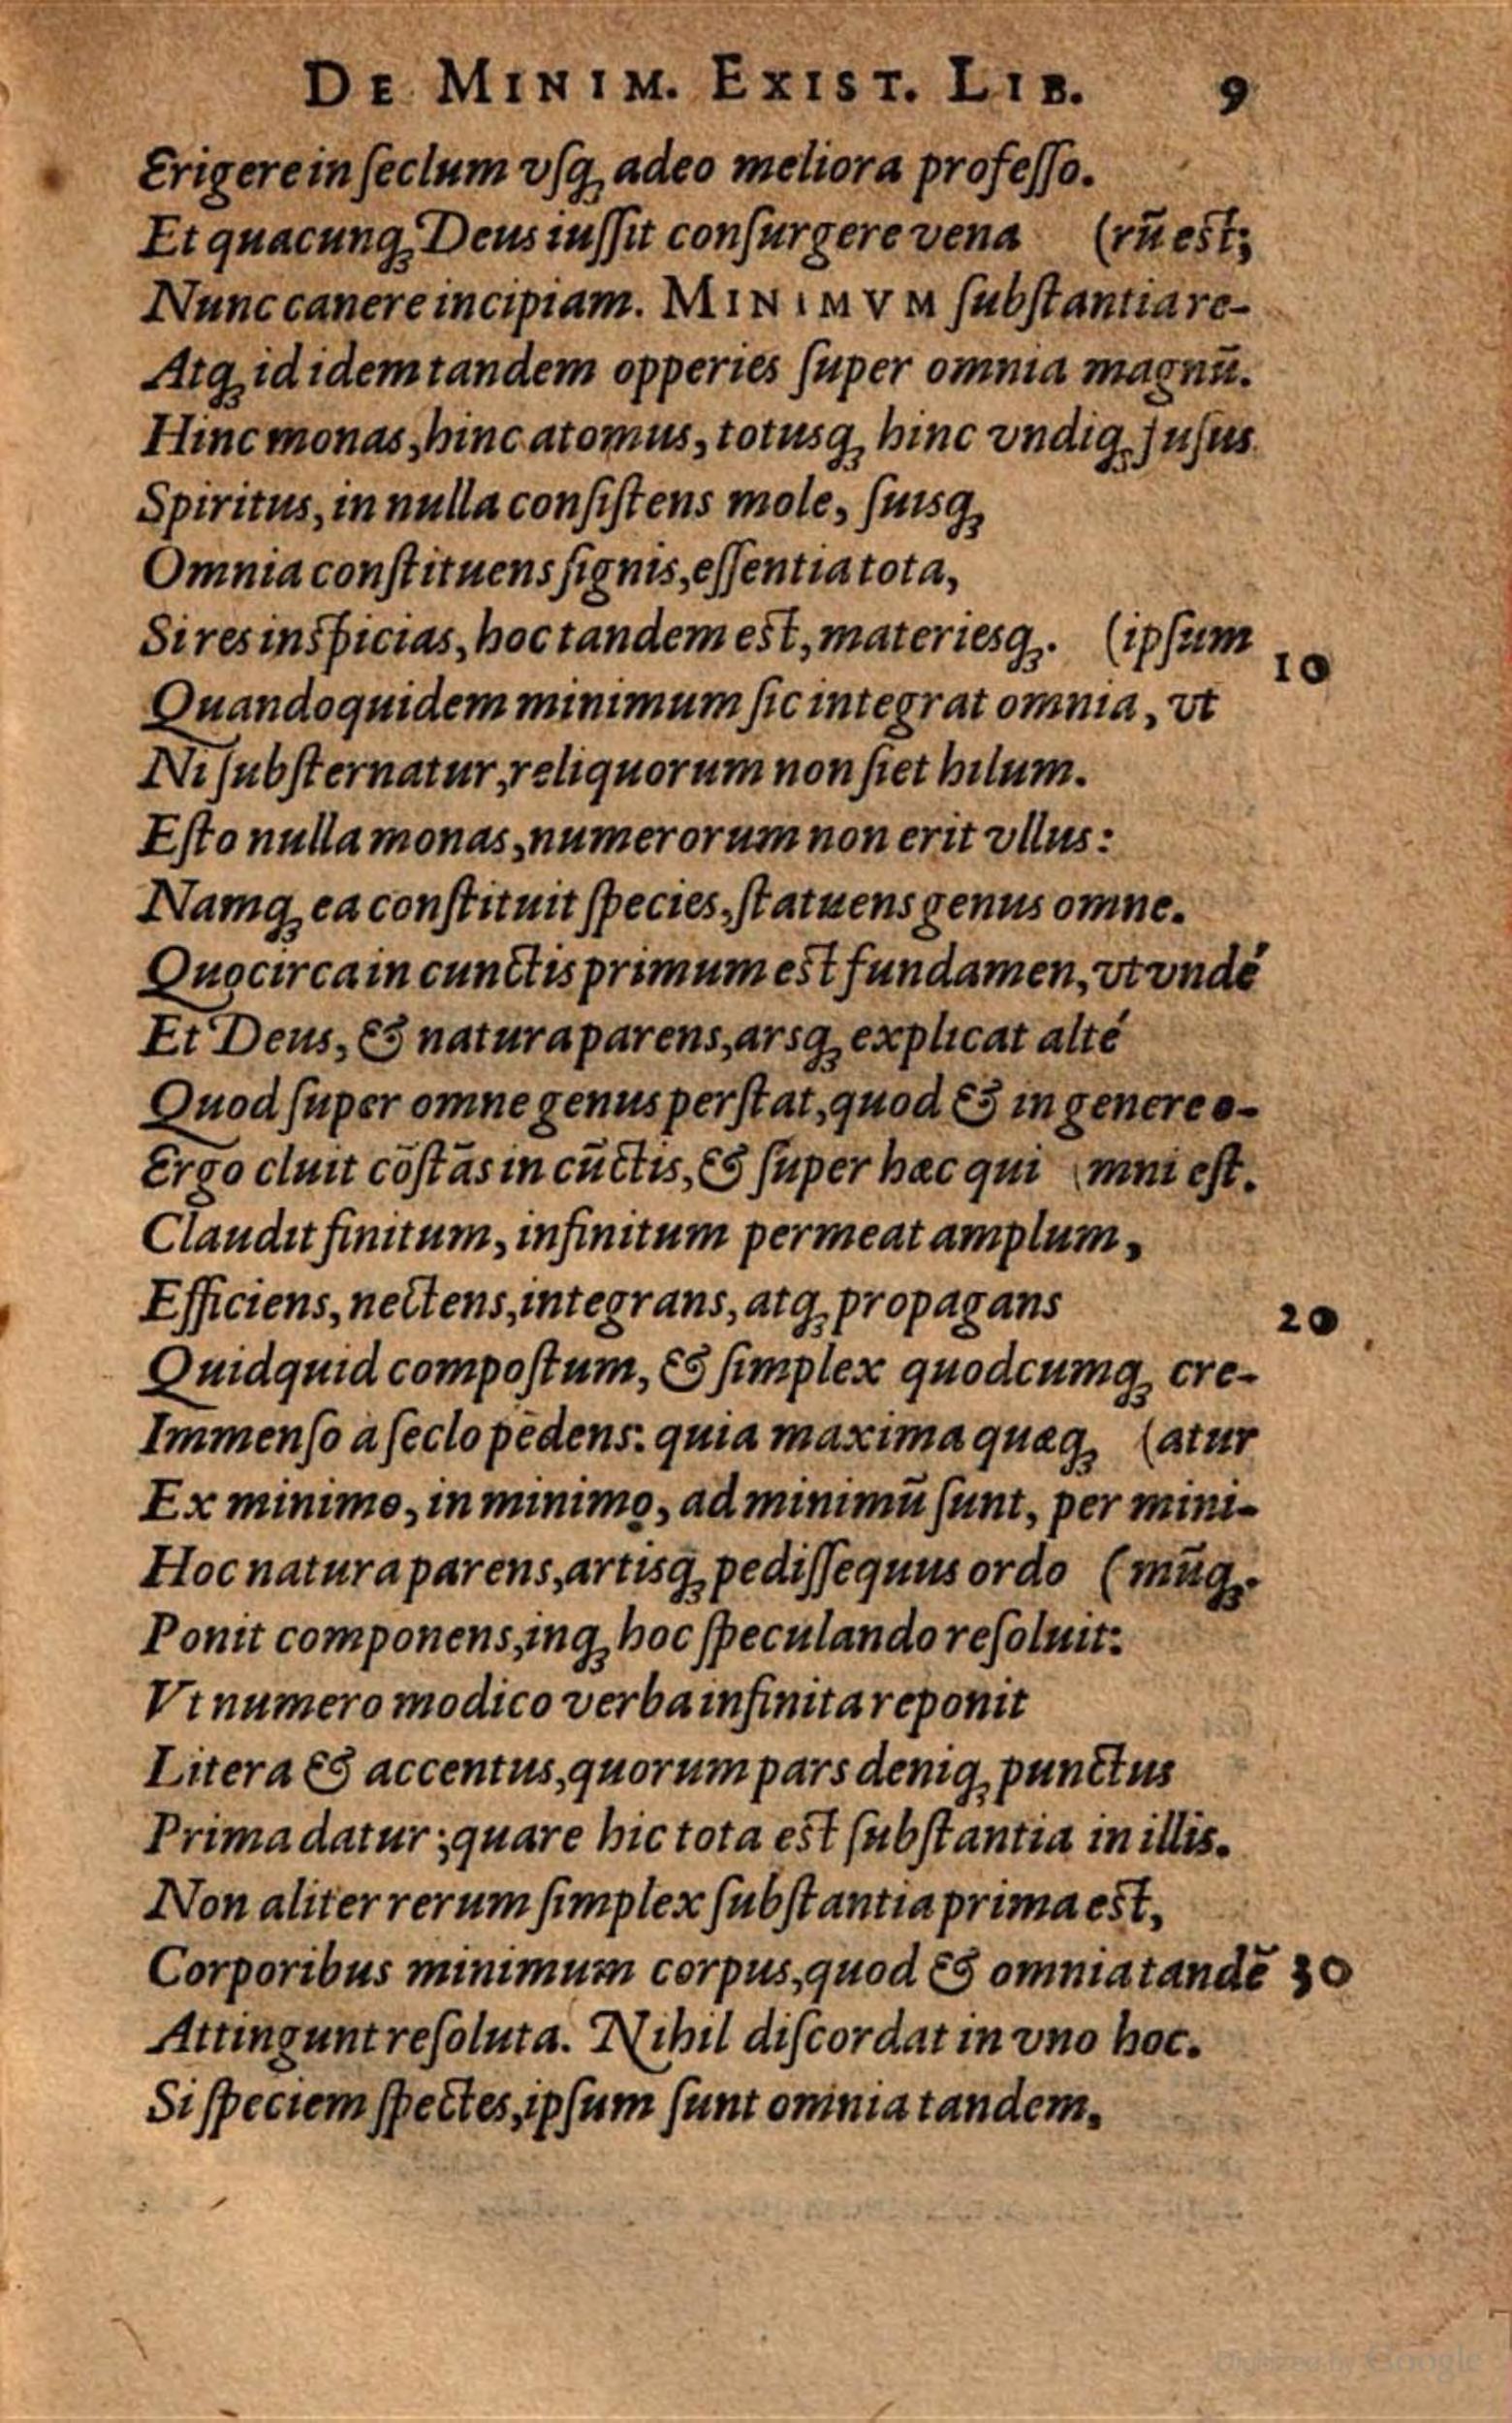 DE MINIM. EXIST. LIB. 9
Erigere in ſeclum vſq; adeo meliora profeſſo.
Et quacunq; Deus iuſſit conſurgere vena (rũ est;
Nunc canere incipiam. MINIMVM ſubſtantia re-
Atq; id idem tandem opperies ſuper omnia magnũ.
Hinc monas, hinc atomus, totusq; hinc vndiq; fuſus
Spiritus, in nulla conſiſtens mole, ſuisq;
Omnia conſtituens ſignis, eſſentia tota,
Si res inspicias, hoc tandem est, materiesq;. (ipſum
10
Quandoquidem minimum ſic integrat omnia, vt
Ni ſubſternatur, reliquorum non ſiet hilum.
Eſto nulla monas, numerorum non erit vllus:
Namq; ea conſtituit ſpecies, ſtatuens genus omne.
Quocirca in cunctis primum est fundamen, vt vndé
Et Deus, & natura parens, arsq; explicat alté
Quod ſuper omne genus perſtat, quod & in genere o-
Ergo cluit cõſtãs in cũctis, & ſuper hæc qui (mni eſt.
Claudit finitum, infinitum permeat amplum,
Efficiens, nectens, integrans, atq; propagans
20
Quidquid compoſtum, & ſimplex quodcumq; cre-
Immenſo a ſeclo pẽdens: quia maxima quæq; (atur
Ex minimo, in minimo, ad minimũ ſunt, per mini-
Hoc natura parens, artisq; pediſſequus ordo (mũq;.
Ponit componens, inq; hoc ſpeculando reſoluit:
Vt numero modico verba infinita reponit
Litera & accentus, quorum pars deniq; punctus
Prima datur; quare hic tota est ſubſtantia in illis.
Non aliter rerum ſimplex ſubſtantia prima est,
Corporibus minimum corpus, quod & omnia tandẽ 30
Attingunt reſoluta. Nihil diſcordat in vno hoc.
Si ſpeciem ſpectes, ipſum ſunt omnia tandem,
Digitized by Google